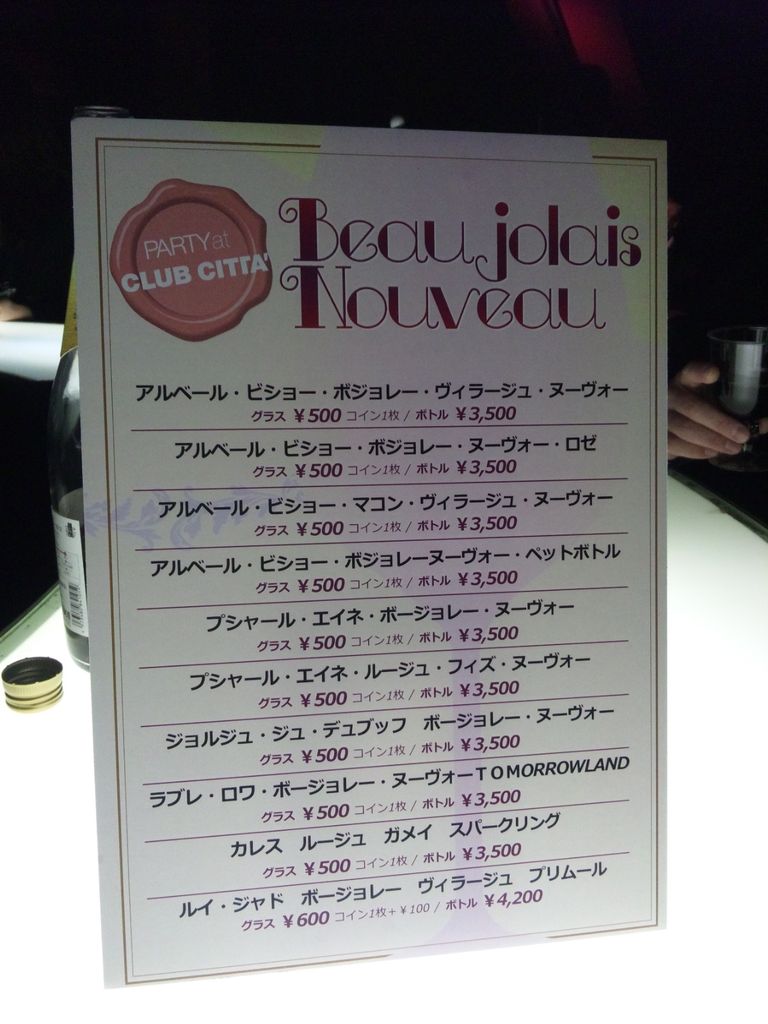 PARTY at
CLUB CITTA'
Beaujolais
Nouveau
アルベール・ビショー・ボジョレー・ヴィラージュ・ヌーヴォー
グラス ¥500 コイン1枚 / ボトル ¥3,500
アルベール・ビショー・ボジョレー・ヌーヴォー・ロゼ
グラス ¥500 コイン1枚 / ボトル ¥3,500
アルベール・ビショー・マコン・ヴィラージュ・ヌーヴォー
グラス ¥500 コイン1枚 / ボトル ¥3,500
アルベール・ビショー・ボジョレーヌーヴォー・ペットボトル
グラス ¥500 コイン1枚 / ボトル ¥3,500
プシャール・エイネ・ボージョレー・ヌーヴォー
グラス ¥500 コイン1枚 / ボトル ¥3,500
プシャール・エイネ・ルージュ・フィズ・ヌーヴォー
グラス ¥500 コイン1枚 / ボトル ¥3,500
ジョルジュ・ジュ・デュブッフ ボージョレー・ヌーヴォー
グラス ¥500 コイン1枚 / ボトル ¥3,500
ラブレ・ロワ・ボージョレー・ヌーヴォーTOMORROWLAND
グラス ¥500 コイン1枚 / ボトル ¥3,500
カレス ルージュ ガメイ スパークリング
グラス ¥500 コイン1枚 / ボトル ¥3,500
ルイ・ジャド ボージョレー ヴィラージュ プリムール
グラス ¥600 コイン1枚+¥100 / ボトル ¥4,200